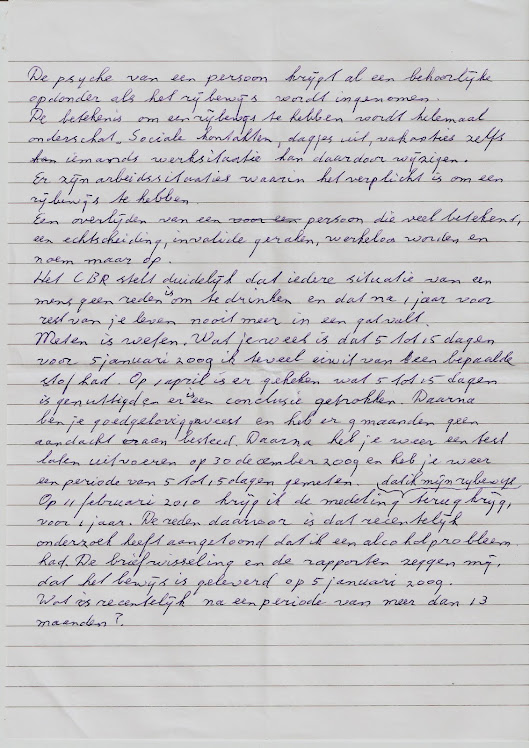 De psyche van een persoon krijgt al een behoorlijke
opdonder als het rijbewijs wordt ingenomen.
De betekenis om een rijbewijs te hebben wordt helemaal
onderschat. Sociale kontakten, dagjes uit, vakanties zelfs
kan iemands werksituatie kan daardoor wijzigen.
Er zijn arbeidssituaties waarin het verplicht is om een
rijbewijs te hebben.
Een overlijden van een voor een persoon die veel betekent,
een echtscheiding, invalide geraken, werkeloos worden en
noem maar op.
Het CBR stelt duidelijk dat iedere situatie van een
mens geen reden is om te drinken en dat na 1 jaar voor
rest van je leven nooit meer in een gat valt.
Meten is weten. Wat je weet is dat 5 tot 15 dagen
voor 5 januari 2009 ik teveel eiwit van een bepaalde
stof had. Op 1 april is er gekeken wat 5 tot 15 dagen
is genuttigd en er is een conclusie getrokken. Daarna
ben je goedgelovig geweest en heb er 9 maanden geen
aandacht aan besteed. Daarna heb je weer een test
laten uitvoeren op 30 december 2009 en heb je weer
een periode van 5 tot 15 dagen gemeten.
Op 11 februari 2010 krijg ik de medeling dat ik mijn rijbewijs terug krijg,
voor 1 jaar. De reden daarvoor is dat recentelijk
onderzoek heeft aangetoond dat ik een alcoholprobleem
had. De briefwisseling en de rapporten zeggen mij,
dat het bewijs is geleverd op 5 januari 2009.
Wat is recentelijk na een periode van meer dan 13
maanden?